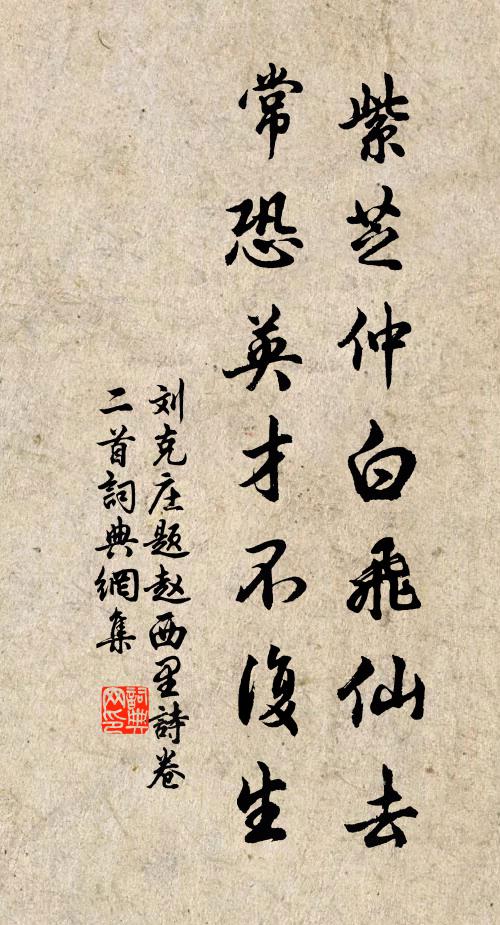 紫芝仲白飛仙去
常恐英才不復生
刘克庄题赵西里詩卷
二首詞典網集
詞典
网印